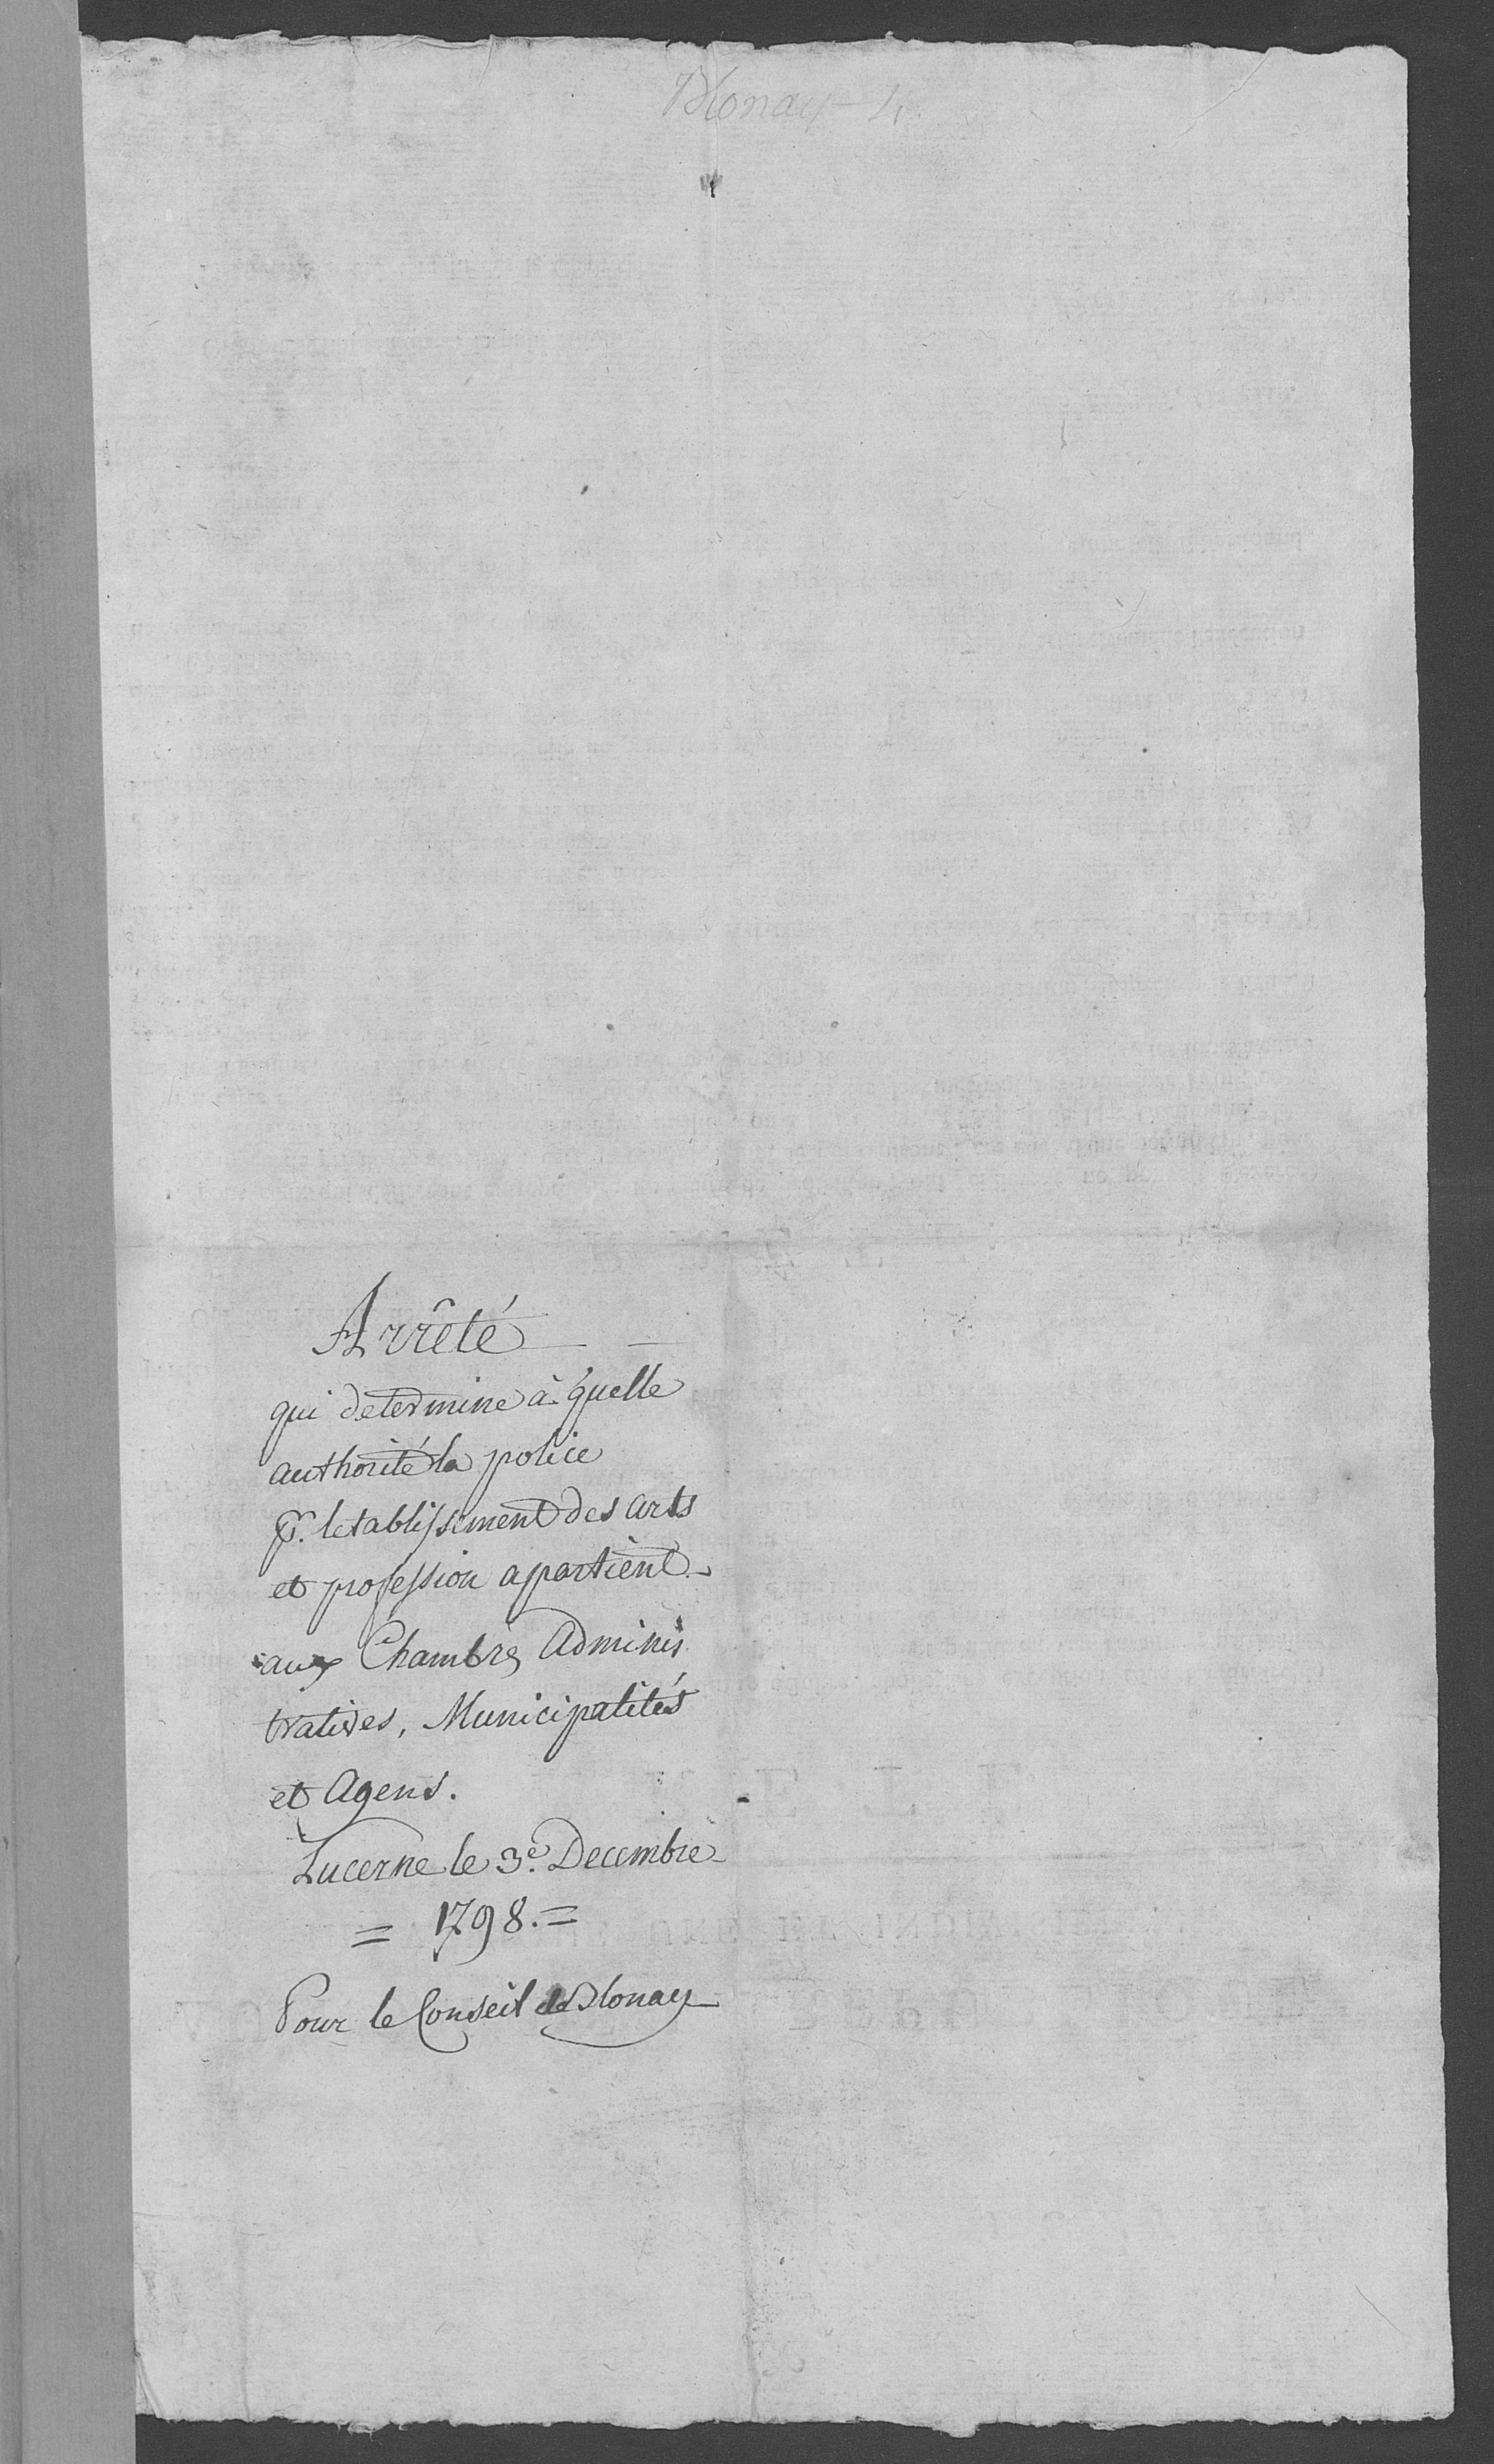 Blonay
Arrêté
qui determine à quelle
authorité la police
pr. letablissement des arts
et profession apartient
aux Chambres Adminis
tratives, Municipalités
et Agens.
Lucerne le 3e. Decembre
= 1798. =
Pour le Conseil de Blonay